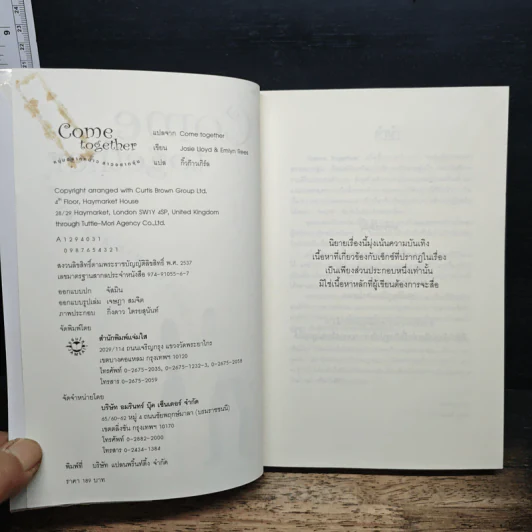 Come
together
แปลจาก Come together
เขียน Josie Lloyd & Emlyn Rees
แปล
Copyright arranged with Curtis Brown Group Ltd.
4th Floor, Haymarket House
28/29 Haymarket, London SW1Y 4SP, United Kingdom
through Tuttle-Mori Agency Co.,Ltd.
A 1 2 9 4 0 3 1
0 9 8 7 6 5 4 3 2 1
สงวนลิขสิทธิ์ตามพระราชบัญญัติลิขสิทธิ์ พ.ศ. 2537
เลขมาตรฐานสากลประจำหนังสือ 974-91055-6-7
ออกแบบปก จัสมิน
ออกแบบรูปเล่ม เจษฎา สมจิต
ภาพประกอบ กิ่งดาว ไตรยสุนันท์
จัดพิมพ์โดย
สำนักพิมพ์แจ่มใส
2029/114 ถนนเจริญกรุง แขวงวัดพระยาไกร
เขตบางคอแหลม กรุงเทพฯ 10120
โทรศัพท์ 0-2675-2035, 0-2675-1232-3, 0-2675-2059
โทรสาร 0-2675-2059
จัดจำหน่ายโดย
บริษัท อมรินทร์ บุ๊ค เซ็นเตอร์ จำกัด
65/60-62 หมู่ 4 ถนนชัยพฤกษ์มาลา (บรมราชชนนี)
เขตตลิ่งชัน กรุงเทพฯ 10170
โทรศัพท์ 0-2882-2000
โทรสาร 0-2434-1384
พิมพ์ที่ บริษัท แปลนพริ้นท์ติ้ง จำกัด
ราคา 189 บาท
นิยายเรื่องนี้มุ่งเน้นความบันเทิง
เนื้อหาที่เกี่ยวข้องกับเซ็กซ์ที่ปรากฏในเรื่อง
เป็นเพียงส่วนประกอบหนึ่งเท่านั้น
มิใช่เนื้อหาหลักที่ผู้เขียนต้องการจะสื่อ